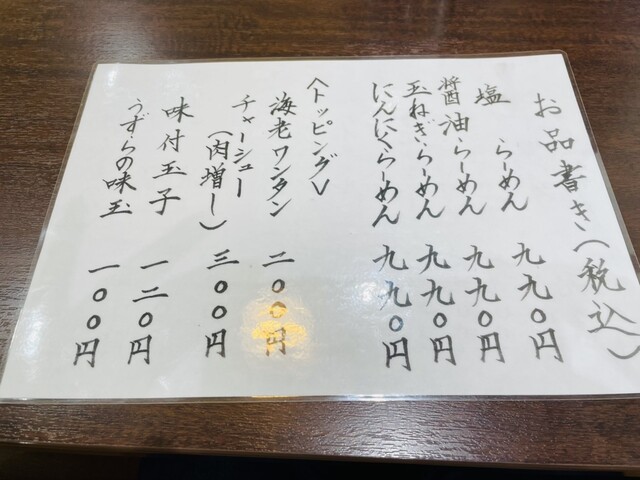 お品書き(税込)
塩らーめん 九九〇円
醤油らーめん 九九〇円
玉ねぎらーめん 九九〇円
にんにくらーめん 九九〇円
〈トッピング〉
海老ワンタン 二〇〇円
チャーシュー
(肉増し) 三〇〇円
味付玉子 一二〇円
うずらの味玉 一〇〇円